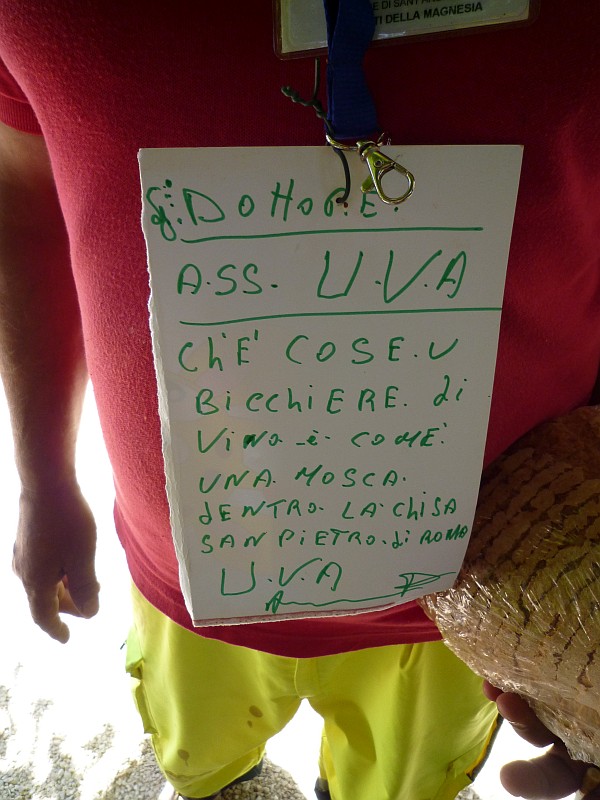 E DI SANT'AN
TI DELLA MAGNESIA
DOTTOR.E.
A.SS. U.V.A
Ch'E' COSE.U
BiCChiERE. di
ViNo è COME'
UNA. MOSCA.
dENTRO. LA.ChiSA
SAN PiETRO.di ROMA
U.V.A